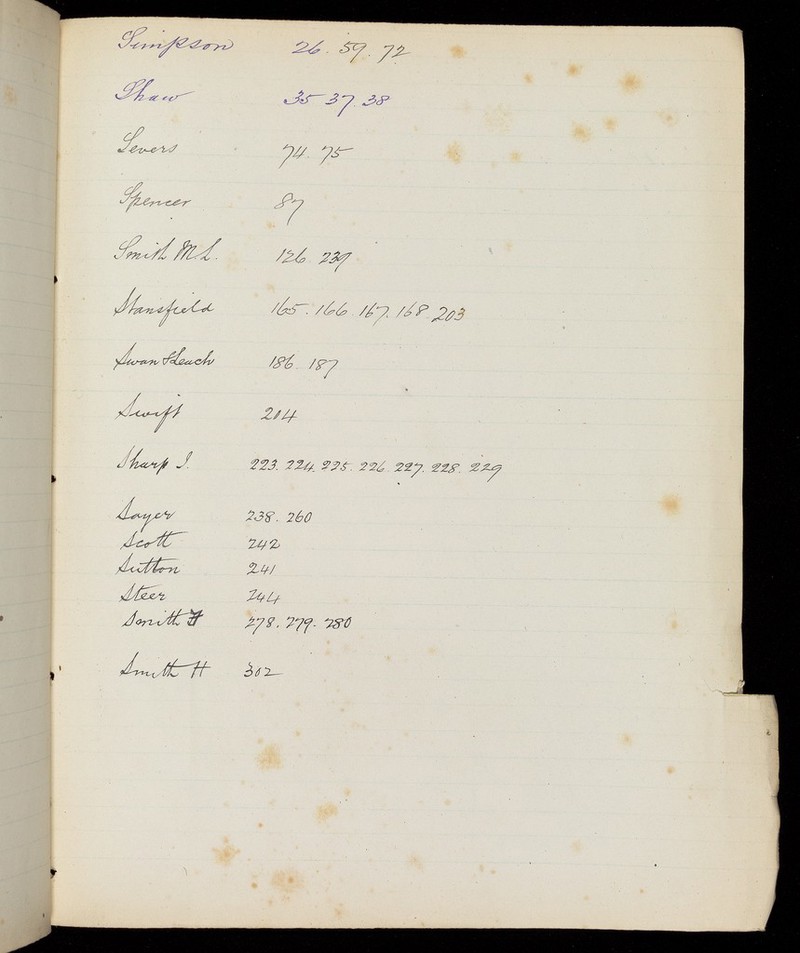 Simpson 26. 59. 72
Shaw 35 37. 38
Severs 74. 75
Spencer 87
Smith M L. 126. 239
Stansfield 165. 166. 167. 168. 203
Swan & Leach 186. 187
Swift 204
Sharp J. 223. 224. 225. 226. 227. 228. 229
Sayer 238. 260
Scott 242
Sutton 241
Steer 244
Smith 278. 279. 280
Smith H 302